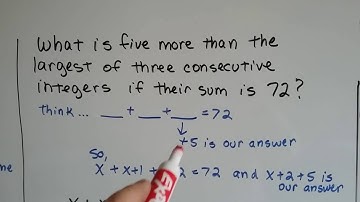 What is five more than the
largest of three consecutive
integers if their sum is 72?
think... __ + __ + __ = 72
+5 is our answer
So,
x + x+1 + 2 = 72 and x+2+5 is
our answer